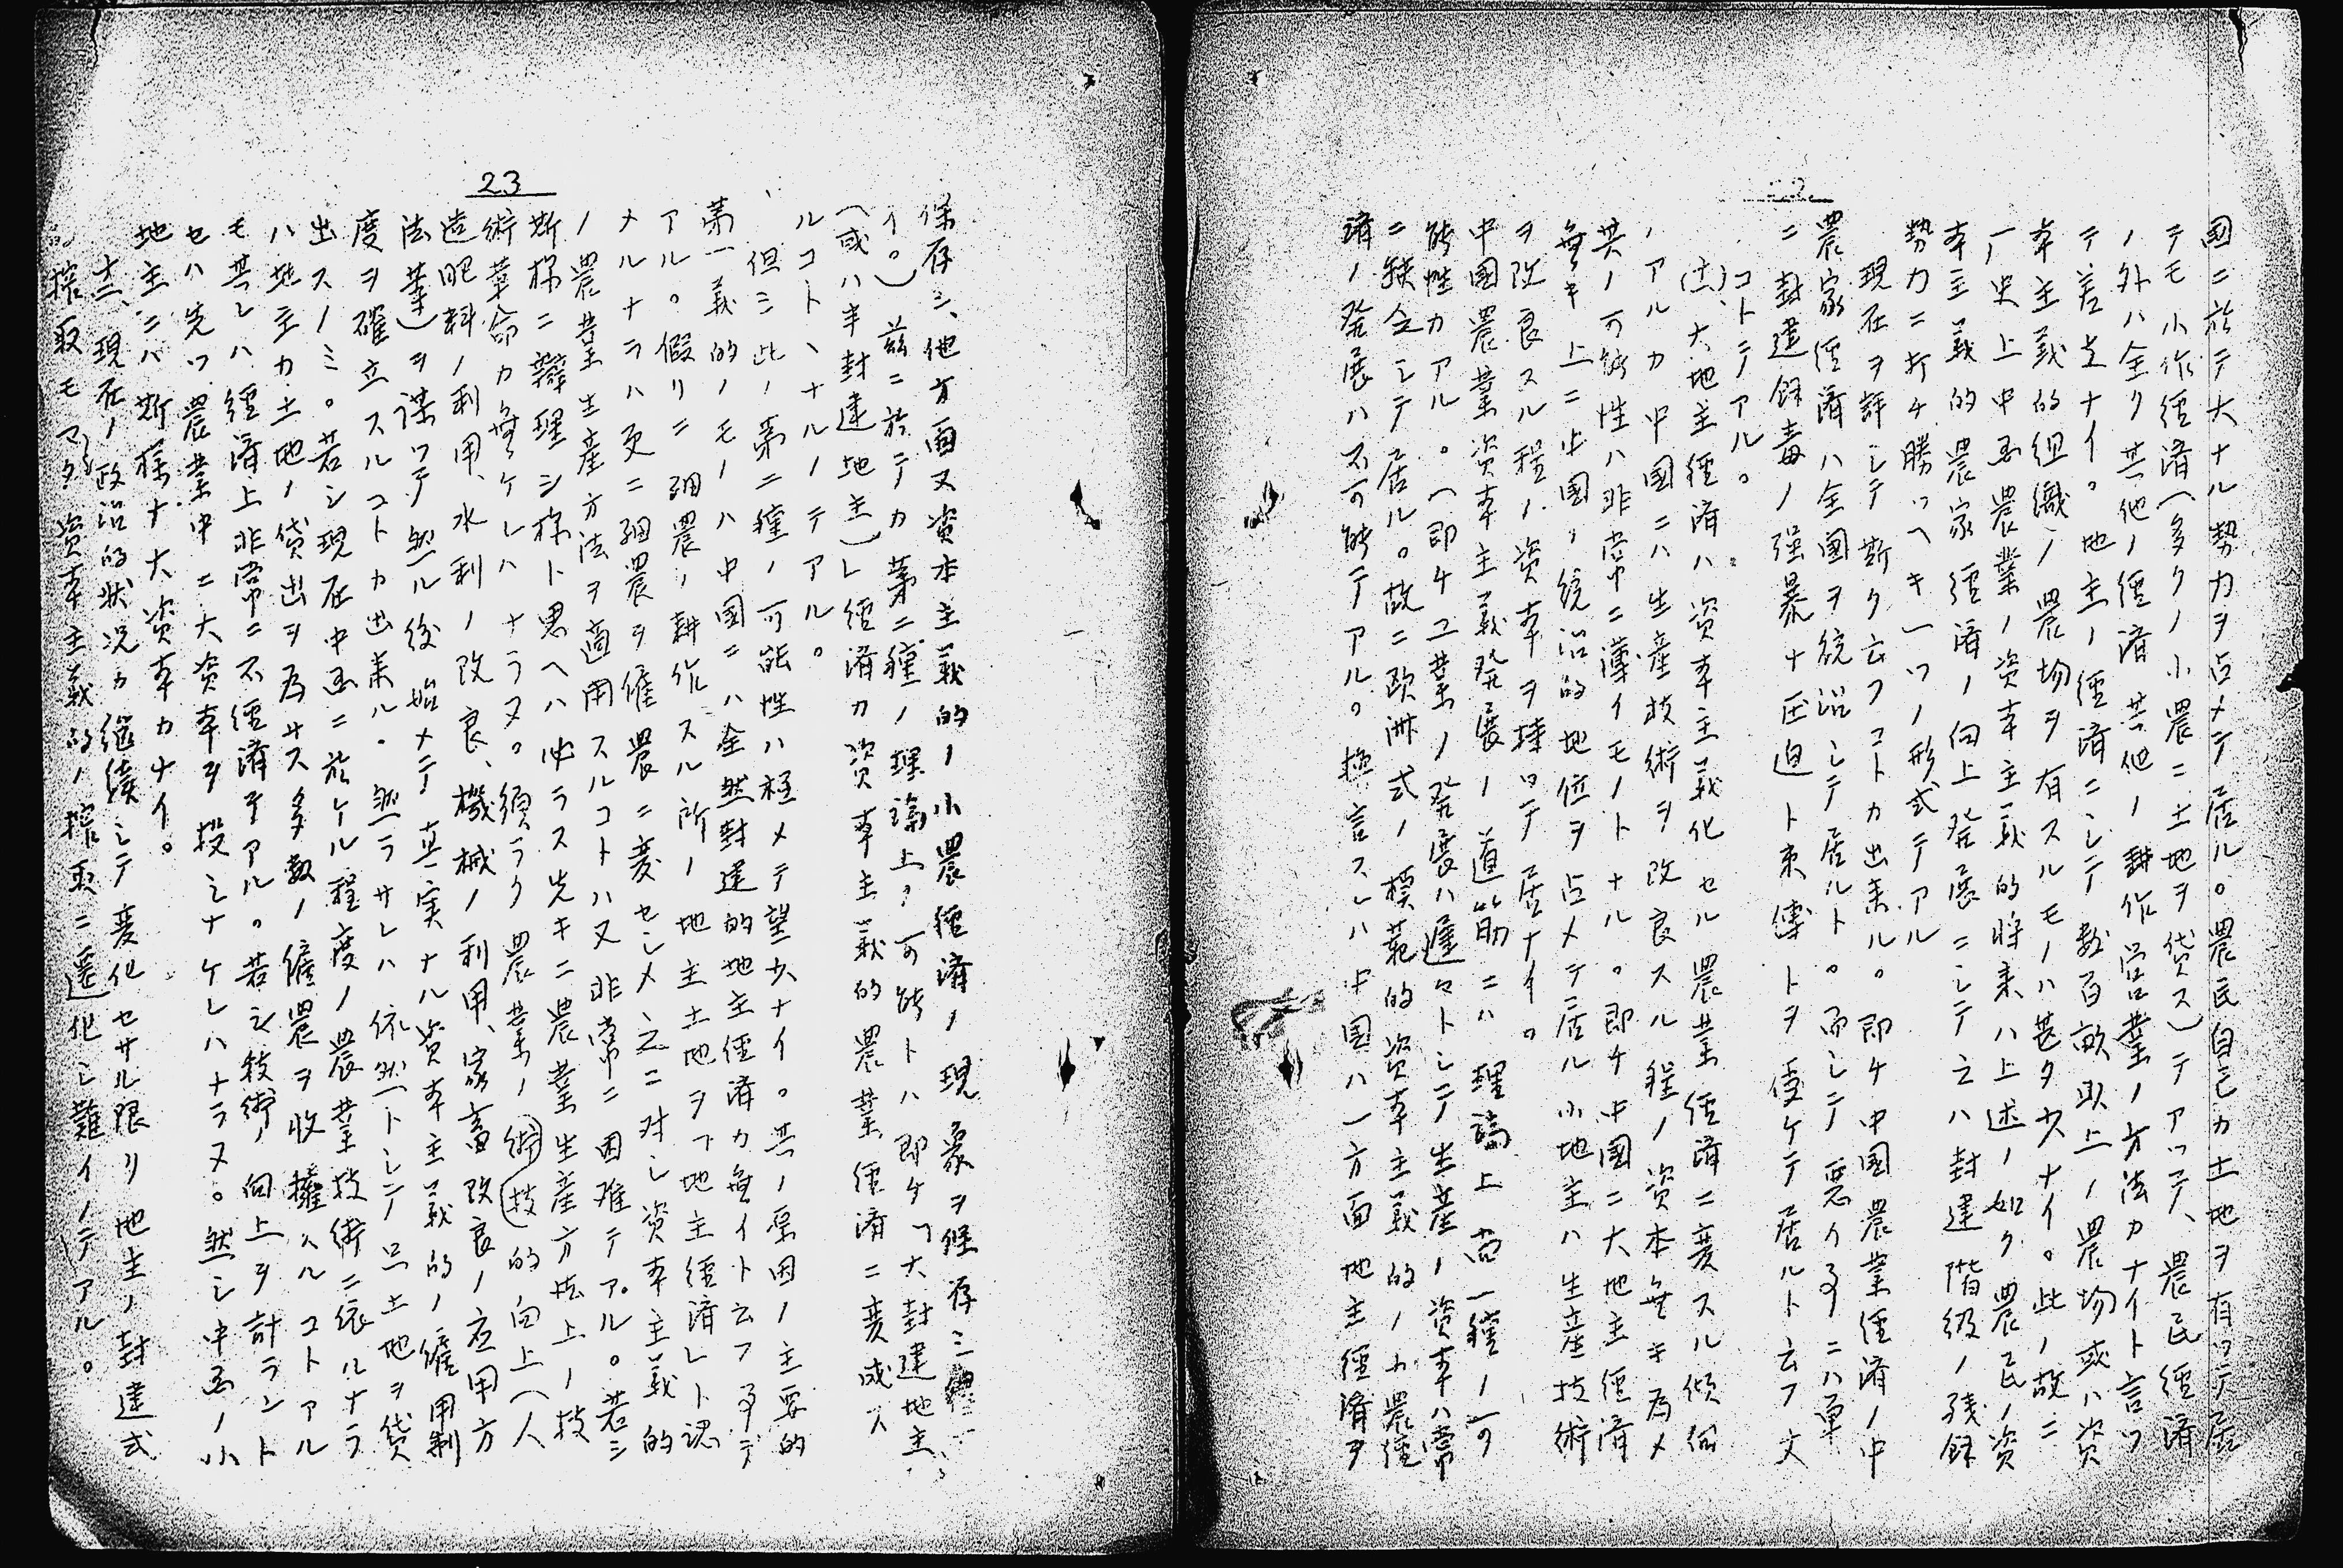 22
國ニ於テ大ナル勢力ヲ占メテ居ル。農民自己カ土地ヲ有ツテ居
テモ小作経済(多クノ小農ニ土地ヲ貸ス)テアツテ、農民経済
ノ外ハ全ク其他ノ経済其他ノ耕作営業ノ方法カナイト言ツ
テ差支ナイ。地主ノ経済ニシテ数百畝以上ノ農場或ハ資
本主義的組織ノ農場ヲ有スルモノハ甚タ少ナイ。此ノ故ニ
一、史上中国農業ノ資本主義的将来ハ上述ノ如ク農民ノ資
本主義的農家経済ノ向上発展ニシテ之ハ封建階級ノ残余
勢力ニ打チ勝ツヘキ一ツノ形式テアル
現在ヲ評シテ斯ク云フコトカ出来ル。即ケ中国農業経済ノ中
農家経済ハ全国ヲ統治シテ居ルト。而シテ悪イ事ニハ軍
ニ封建餘毒ノ强暴ナ圧迫ト束縛トヲ受ケテ居ルト云フ丈
コトテアル。
(十)、大地主経済ハ資本主義化セル農業経済ニ変スル傾向
ノアルカ中國ニハ生産技術ヲ改良スル程ノ資本無キ為メ
其ノ可能性ハ非常ニ薄イモノトナル。即チ中國ニ大地主経済
無キ上ニ中國ノ統治的地位ヲ占メテ居ル小地主ハ生産技術
ヲ改良スル程ノ資本ヲ持ツテ居ナイ。
中國農業資本主義発展ノ道筋ニハ理論上尚一種ノ可
能性カアル。(即チ工業ノ発展ハ遅々トシテ生産ノ資本ハ常
ニ缺乏シテ居ル。故ニ欧洲式ノ模範的資本主義的ノ小農経
済ノ発展ハ不可能テアル。換言スレハ中国ハ一方面地主経済ヲ
23
保存シ、他方面又資本主義的ノ小農経済ノ現象ヲ保存シ
イ。)玆ニ於テカ第二種ノ理論上ノ可能トハ即ケ「大封建地主、
(或ハ半封建地主)」経済カ資本主義的農業経済ニ変成ス
ルコトヽナルノテアル。
但シ此ノ第二種ノ可能性ハ極メテ望少ナイ。其ノ原因ノ主要的
第一義的ノモノハ中国ニハ全然封建的地主経済カ無イト云フ事テ
アル。假リニ細農ノ耕作スル所ノ地主土地ヲ「地主経済」ト認
メルナラハ更ニ細農ヲ傭農ニ変セシメ之ニ対シ資本主義的
ノ農業生産方法ヲ適用スルコトハ又非常ニ困难テアル。若シ
斯様ニ辨理シ様ト思ヘハ必ラス先キニ農業生産方法上ノ技
術革命カ無ケレハナラヌ。須ラク農業ノ術技的向上(人
造肥料ノ利用、水利ノ改良、機械ノ利用、家畜改良ノ応用方
法業)ヲ謀ツテ然ル後始メテ真実ナル資本主義的ノ傭用制
度ヲ確立スルコトカ出来ル。然ラサレハ依然トシテ只土地ヲ貸
出スノミ。若シ現在中国ニ於ケル程度ノ農業技術ニ依ルナラ
ハ地主カ土地ノ貸出ヲ為サス多数ノ傭農ヲ收擁スルコトアル
モ其レハ経済上非常ニ不経済テアル。若シ技術ノ向上ヲ計ラント
セハ先ツ農業中ニ大資本ヲ投シナケレハナラヌ。然シ中国ノ小
地主ニハ斯様ナ大資本カナイ。
十二、現在ノ政治的状况カ継続シテ変化セサル限リ地主ノ封建式
的搾取モマタ資本主義的ノ搾取ニ進化シ難イノテアル。